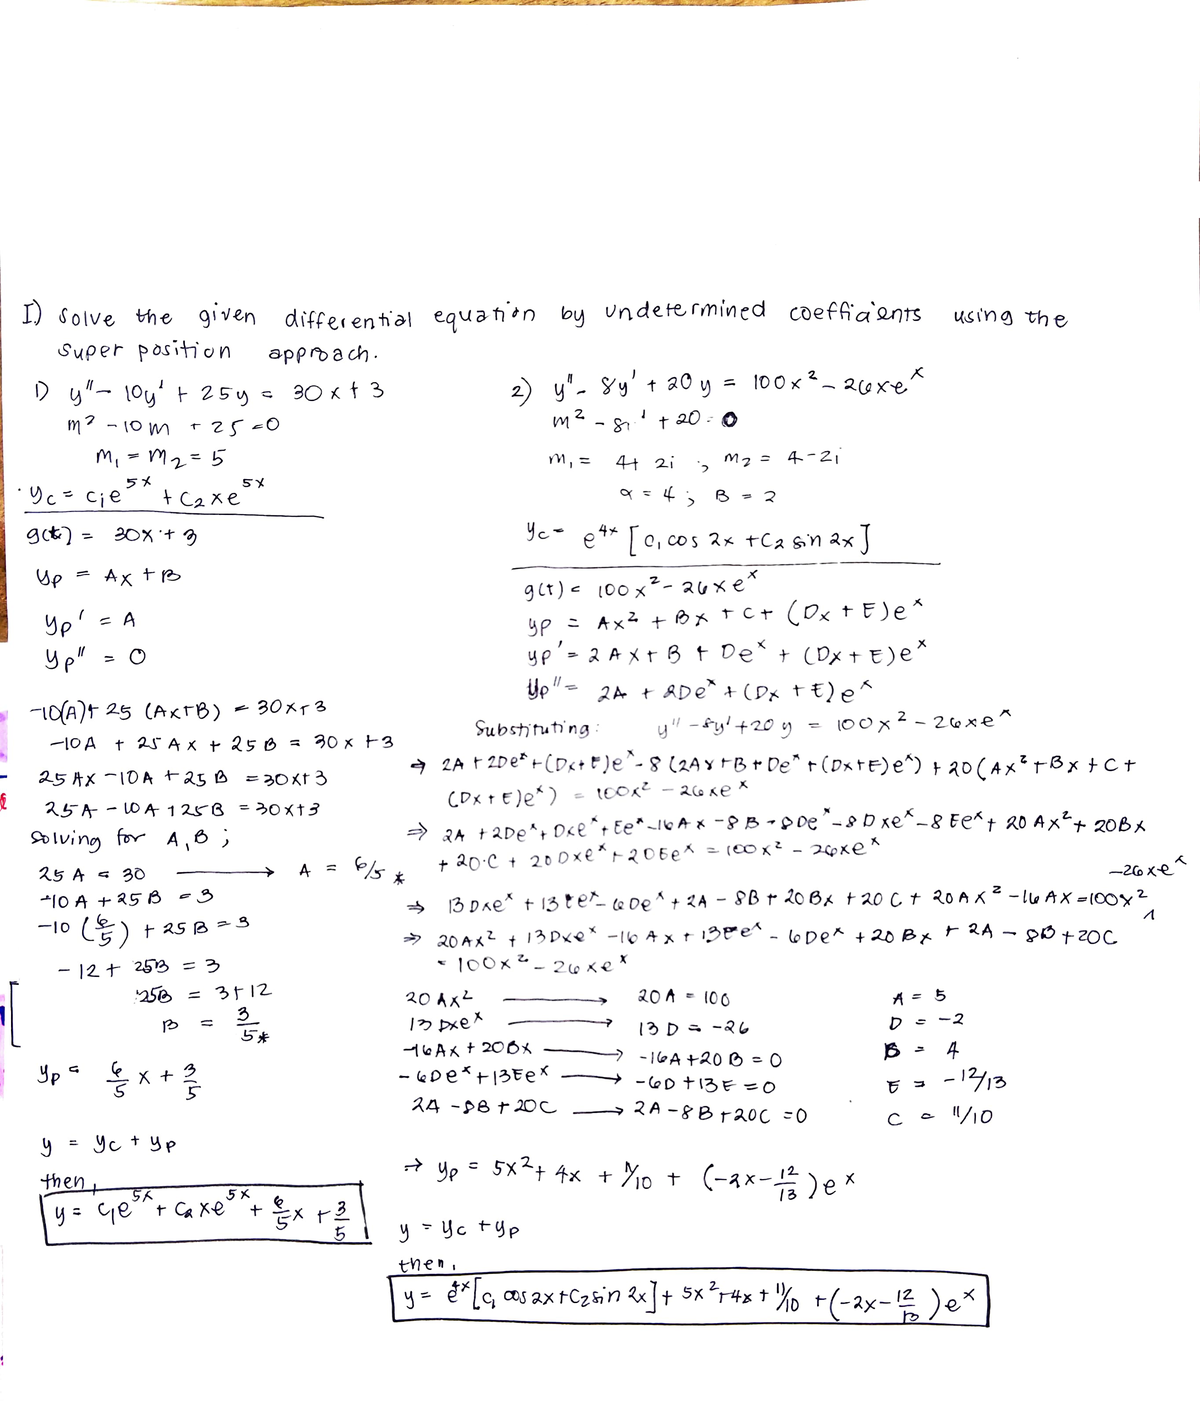 I) Solve the given differential equation by undetermined coefficients using the
super position approach.
1) y" - 10y' + 25y = 30x + 3
m² - 10m + 25 = 0
m₁ = m₂ = 5
yc = c₁e^5x + c₂xe^5x
g(t) = 30x + 3
yp = Ax + B
yp' = A
yp" = 0
-10(A) + 25 (Ax+B) = 30x + 3
-10A + 25Ax + 25B = 30x + 3
25Ax - 10A + 25B = 30x + 3
25A - 10A + 25B = 30x + 3
Solving for A, B ;
25A = 30 → A = 6/5 *
-10A + 25B = 3
-10 (6/5) + 25B = 3
-12 + 25B = 3
25B = 3 + 12
B = 3/5 *
yp = 6/5 x + 3/5
y = yc + yp
then,
y = c₁e^5x + c₂xe^5x + 6/5 x + 3/5
2) y" - 8y' + 20y = 100x² - 26xe^x
m² - 8 ' + 20 = 0
m₁ = 4+2i ; m₂ = 4-2i
α = 4 ; B = 2
yc = e^4x [c₁ cos 2x + c₂ sin 2x]
g(t) = 100x² - 26xe^x
yp = Ax² + Bx + C + (Dx + E)e^x
yp' = 2Ax + B + De^x + (Dx + E)e^x
yp" = 2A + 2De^x + (Dx + E)e^x
Substituting: y" - 8y' + 20y = 100x² - 26xe^x
⇒ 2A + 2De^x + (Dx+E)e^x - 8(2Ax + B + De^x + (Dx+E)e^x) + 20(Ax² + Bx + C +
(Dx + E)e^x) = 100x² - 26xe^x
⇒ 2A + 2De^x + Dxe^x + Ee^x - 16Ax - 8B - 8De^x - 8Dxe^x - 8Ee^x + 20Ax² + 20Bx
+ 20·C + 20Dxe^x + 20Ee^x = 100x² - 26xe^x
⇒ 13Dxe^x + 13Ee^x - 6De^x + 2A - 8B + 20Bx + 20C + 20Ax² - 16Ax = 100x² - 26xe^x
⇒ 20Ax² + 13Dxe^x - 16Ax + 13Ee^x - 6De^x + 20Bx + 2A - 8B + 20C
= 100x² - 26xe^x
20Ax² → 20A = 100 A = 5
13Dxe^x → 13D = -26 D = -2
-16Ax + 20Bx → -16A + 20B = 0 B = 4
-6De^x + 13Ee^x → -6D + 13E = 0 E = -12/13
2A - 8B + 20C → 2A - 8B + 20C = 0 C = 11/10
⇒ yp = 5x² + 4x + 11/10 + (-2x - 12/13)e^x
y = yc + yp
then,
y = e^4x [c₁ cos 2x + c₂ sin 2x] + 5x² + 4x + 11/10 + (-2x - 12/13)e^x